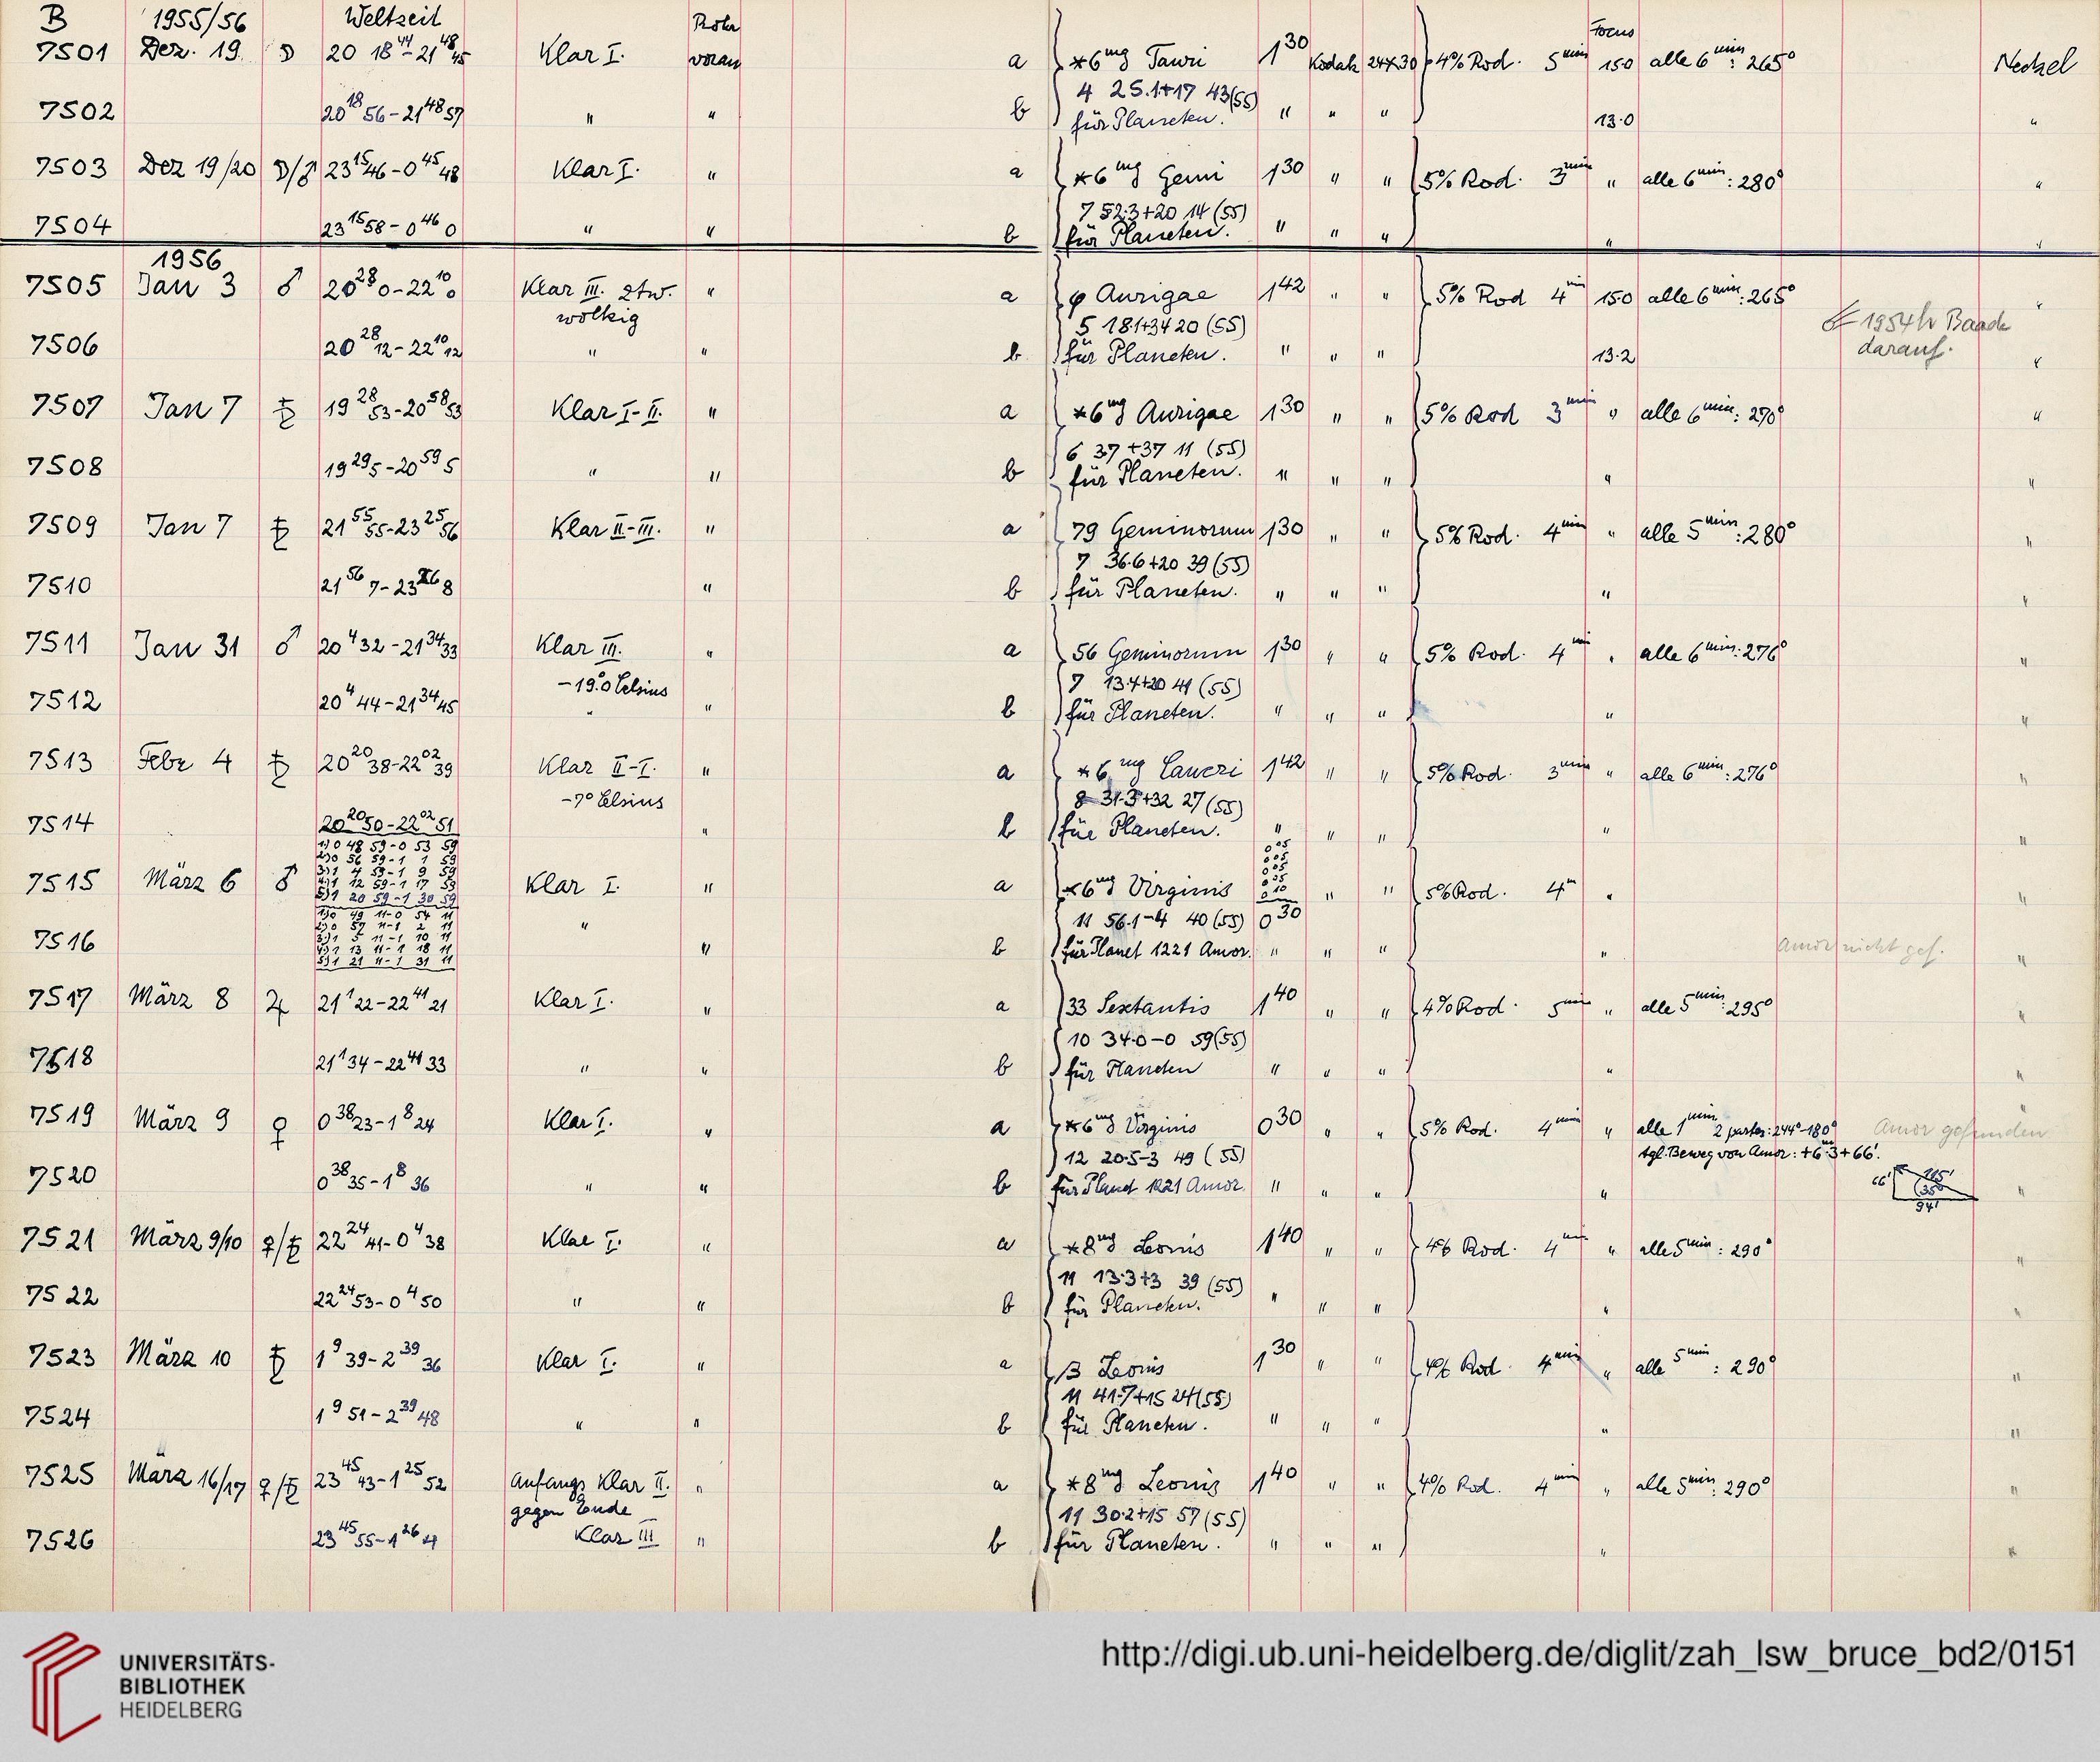 B 1955/56 Weltzeit Rohr Focus
7501 Dez. 19. ☽ 20 18 44 - 21 48 45 Klar I. voran a *6mg Tauri 1 30 Kodak 24x30 4% Rod. 5min 15.0 alle 6min: 265° Neckel
4 25.1+17 43(55)
7502 20 18 56 - 21 48 57 " " b für Planeten. " " " 13.0 "
7503 Dez 19/20 ☽/♂ 23 15 46 - 0 45 48 Klar I. " a *6mg Gemi 1 30 " " 5% Rod. 3min " alle 6min: 280° "
7 52.3+20 14 (55)
7504 23 15 58 - 0 46 0 " " b für Planeten. " " " " "
1956
7505 Jan 3 ♂ 20 28 0 - 22 10 0 Klar III. ztw. " a φ Aurigae 1 42 " " 5% Rod 4min 15.0 alle 6min: 265° "
wolkig 5 18.1+34 20 (55) 1954 Baade
7506 20 28 12 - 22 10 12 " " b für Planeten. " " " 13.2 darauf. "
7507 Jan 7 ♄ 19 28 53 - 20 58 53 Klar I-II. " a *6mg Aurigae 1 30 " " 5% Rod 3min " alle 6min: 270° "
6 37 +37 11 (55)
7508 19 29 5 - 20 59 5 " " b für Planeten. " " " " "
7509 Jan 7 ♄ 21 55 55 - 23 25 56 Klar II-III. " a 79 Geminorum 1 30 " " 5% Rod. 4min " alle 5min: 280° "
7 36.6+20 39 (55)
7510 21 56 7 - 23 26 8 " b für Planeten. " " " " "
7511 Jan 31 ♂ 20 4 32 - 21 34 33 Klar III. " a 56 Geminorum 1 30 " " 5% Rod. 4min " alle 6min: 276° "
-19.°0 Celsius 7 13.4+20 41 (55)
7512 20 4 44 - 21 34 45 " " b für Planeten. " " " " "
7513 Febr 4 ♄ 20 20 38 - 22 02 39 Klar II-I. " a *6mg Cancri 1 42 " " 5% Rod. 3min " alle 6min: 276° "
-7° Celsius 8 31.3+32 27 (55)
7514 20 20 50 - 22 02 51 " b für Planeten. " " " " "
1) 0 48 59 - 0 53 59 0 05
2) 0 56 59 - 1 1 59 0 05
3) 1 4 59 - 1 9 59 0 05
7515 März 6 ♂ 4) 1 12 59 - 1 17 59 Klar I. " a *6mg Virginis 0 05 " " 5% Rod. 4m " "
5) 1 20 59 - 1 30 59 0 10
1) 0 49 11 - 0 54 11 " 11 56.1-4 40 (55) 0 30
2) 0 57 11 - 1 2 11
7516 3) 1 5 11 - 1 10 11 " b für Planet 1221 Amor. " " " " Amor nicht gef. "
4) 1 13 11 - 1 18 11
5) 1 21 11 - 1 31 11
7517 März 8 ♃ 21 1 22 - 22 41 21 Klar I. " a 33 Sextantis 1 40 " " 4% Rod. 5min " alle 5min: 295° "
10 34.0-0 59(55)
7518 21 1 34 - 22 41 33 " " b für Planeten " " " " "
7519 März 9 ♀ 0 38 23 - 1 8 24 Klar I. " a *6mg Virginis 0 30 " " 5% Rod. 4min " alle 1min 2 partes: 244°-180° Amor gefunden "
12 20.5-3 49 (55) tgl. Beweg von Amor: +6m.3+66'.
7520 0 38 35 - 1 8 36 " " b für Planet 1221 Amor. " " " " 66' 115' 35° 94' "
7521 März 9/10 ♀/♄ 22 24 41 - 0 4 38 Klar I. " a *8mg Leonis 1 40 " " 4% Rod. 4min " alle 5min: 290° "
11 13.3+3 39 (55)
7522 22 24 53 - 0 4 50 " " b für Planeten. " " " " "
7523 März 10 ♄ 1 9 39 - 2 39 36 Klar I. " a β Leonis 1 30 " " 4% Rod. 4min " alle 5min: 290° "
11 41.7+15 24(55)
7524 1 9 51 - 2 39 48 " " b für Planeten. " " " " "
7525 März 16/17 ♀/♄ 23 45 43 - 1 25 52 Anfangs Klar II. " a *8mg Leonis 1 40 " " 4% Rod. 4min " alle 5min: 290° "
gegen Ende 11 30.2+15 57 (55)
7526 23 45 55 - 1 26 4 Klar III " b für Planeten. " " " " "
UNIVERSITÄTS-
BIBLIOTHEK
HEIDELBERG
http://digi.ub.uni-heidelberg.de/diglit/zah_lsw_bruce_bd2/0151